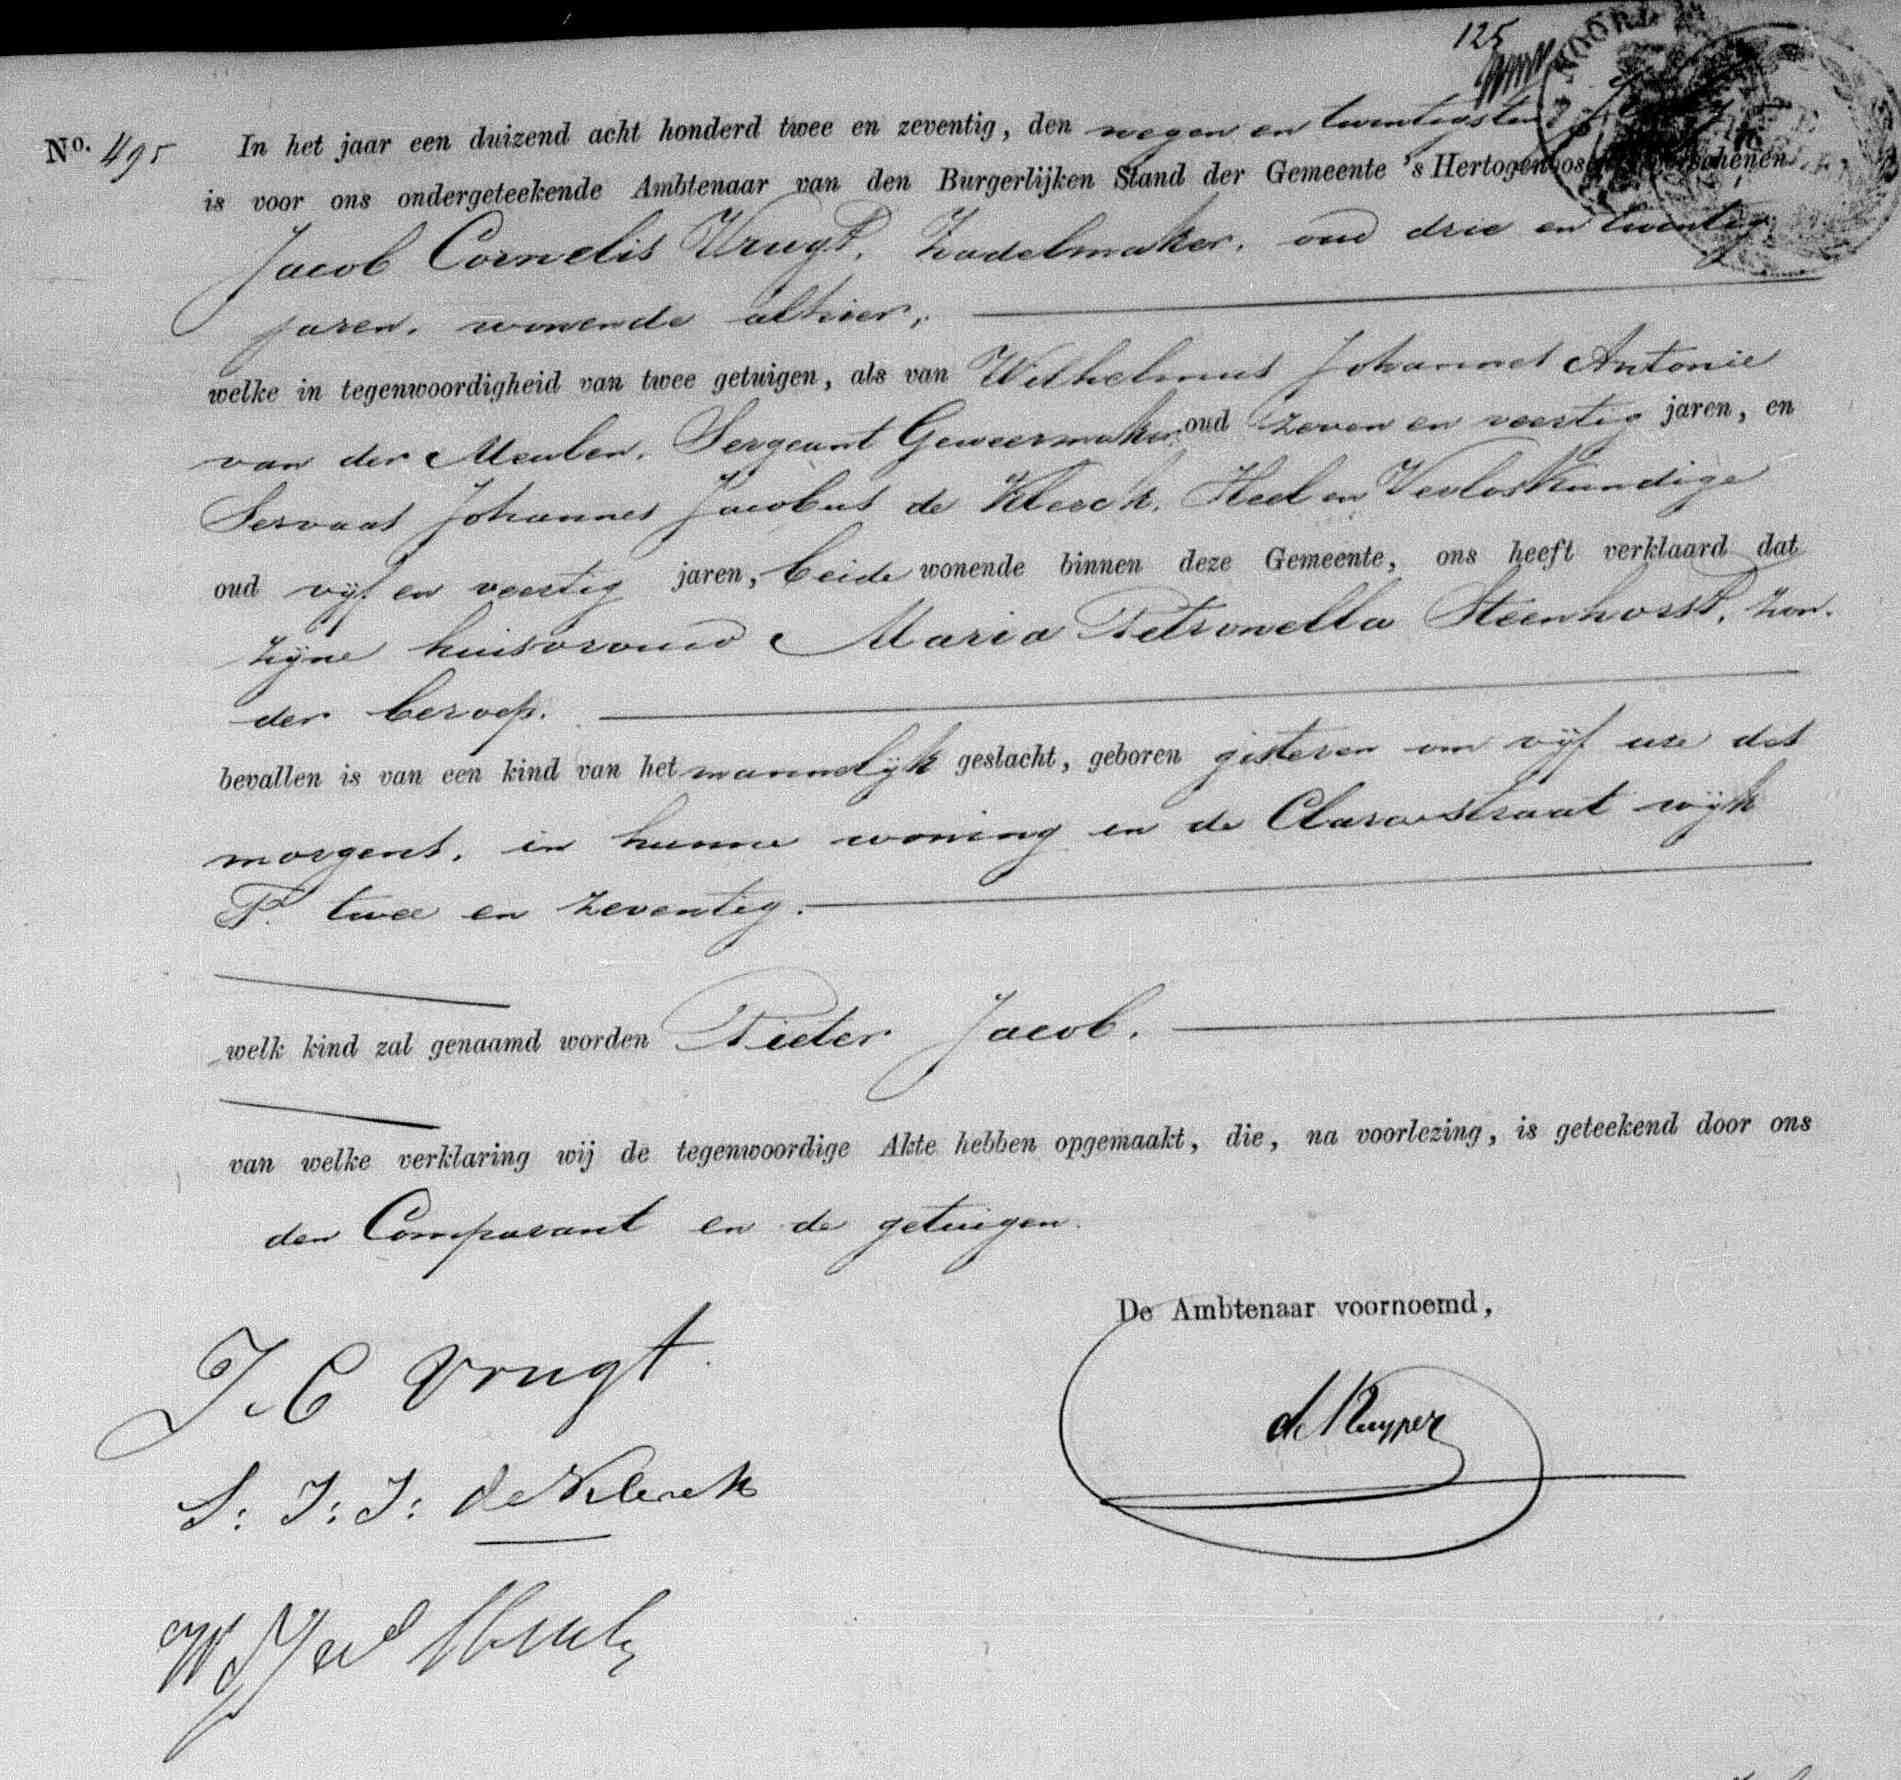 125
NOORD
No. 495 In het jaar een duizend acht honderd twee en zeventig, den negen en twintigsten
is voor ons ondergeteekende Ambtenaar van den Burgerlijken Stand der Gemeente 's Hertogenbosch verschenen
Jacob Cornelis Vrugt, Zadelmaker, oud drie en twintig
jaren, wonende alhier,
welke in tegenwoordigheid van twee getuigen, als van Wilhelmus Johannes Antonie
van der Meulen, Sergeant Geweermaker, oud zeven en veertig jaren, en
Servaas Johannes Jacobus de Klerck, Heel en Verloskundige
oud vijf en veertig jaren, beide wonende binnen deze Gemeente, ons heeft verklaard dat
zijne huisvrouw Maria Petronella Steenhorst, zon-
der beroep.
bevallen is van een kind van het mannelijk geslacht, geboren gisteren om vijf ure des
morgens, in hunne woning in de Clarastraat wijk
F. twee en zeventig.
welk kind zal genaamd worden Pieter Jacob.
van welke verklaring wij de tegenwoordige Akte hebben opgemaakt, die, na voorlezing, is geteekend door ons
den Comparant en de getuigen.
De Ambtenaar voornoemd,
J. C Vrugt.
de Kuyper
S: J: J: de Klerck